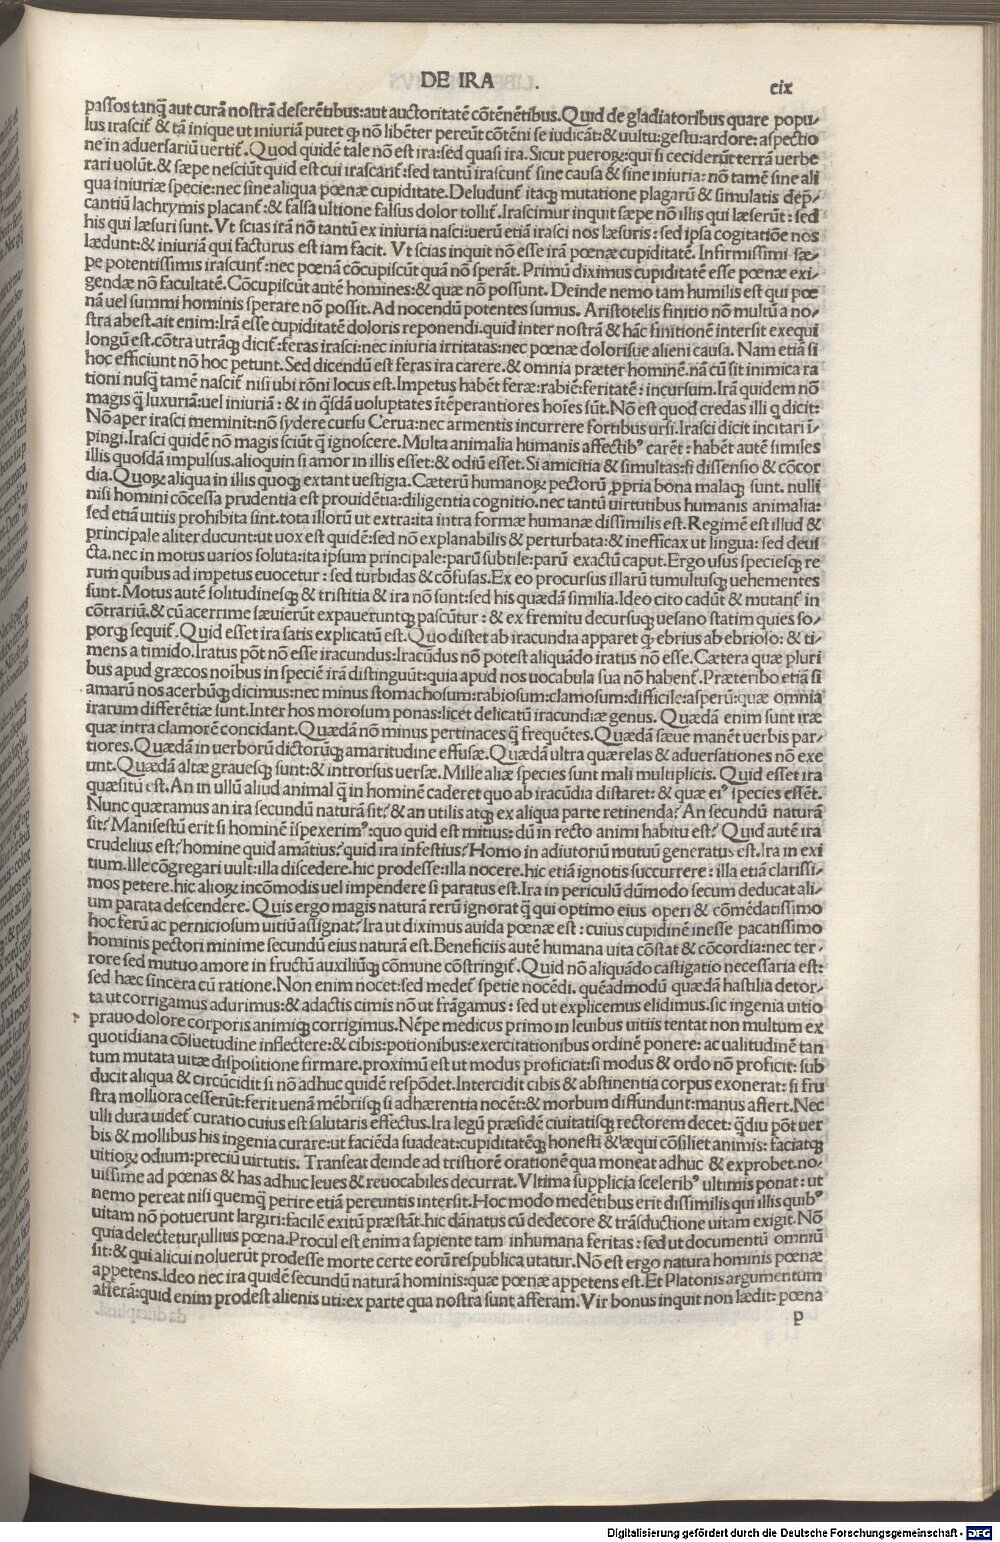 DE IRA
cix
passos tanq̃ aut curã nostrã deserẽtibus:aut auctoritatẽ cõtẽnẽtibus. Quid de gladiatoribus quare popu⸗
lus irascit᷑ & tã inique ut iniuriã putet q̃ nõ libẽter pereũt cõtẽni se iudicãt:& uultu:gestu:ardore:aspectio
ne in aduersariũ uertit᷑. Quod quidẽ tale nõ est ira:sed quasi ira. Sicut pueroꝝ:qui si ceciderũt terrã uerbe
rari uolũt.& sæpe nesciũt quid est cui irascant᷑:sed tantũ irascunt᷑ sine causa & sine iniuria:nõ tamẽ sine ali
qua iniuriæ specie:nec sine aliqua pœnæ cupiditate. Deludunt᷑ itaqꝫ mutatione plagarũ & simulatis dep̃⸗
cantiũ lachrymis placant᷑:& falsa ultione falsus dolor tollit᷑. Irascimur inquit sæpe nõ illis qui læserũt: sed
his qui læsuri sunt. Vt scias irã nõ tantũ ex iniuria nasci:uerũ etiã irasci nos læsuris: sed ipsa cogitatiõe nos
lædunt:& iniuriã qui facturus est iam facit. Vt scias inquit nõ esse irã pœnæ cupiditatẽ. Infirmissimi sæ⸗
pe potentissimis irascunt᷑:nec pœnã cõcupiscũt quã nõ sperãt. Primũ diximus cupiditatẽ esse pœnæ exi⸗
gendæ nõ facultatẽ. Cõcupiscũt autẽ homines:& quæ nõ possunt. Deinde nemo tam humilis est qui pœ
nã uel summi hominis sperare nõ possit. Ad nocendũ potentes sumus. Aristotelis finitio nõ multũ a no⸗
stra abest.ait enim:Irã esse cupiditatẽ doloris reponendi.quid inter nostrã & hãc finitionẽ intersit exequi
longũ est.cõtra utrãqꝫ dicit᷑:feras irasci:nec iniuria irritatas:nec pœnæ dolorisue alieni causa. Nam etiã si
hoc efficiunt nõ hoc petunt. Sed dicendũ est feras ira carere.& omnia præter hominẽ.nã cũ sit inimica ra
tioni nusq̃ tamẽ nascit᷑ nisi ubi rõni locus est. Impetus habẽt feræ:rabiẽ:feritatẽ: incursum. Irã quidem nõ
magis q̃ luxuriã:uel iniuriã: & in q̃sdã uoluptates ĩtẽperantiores hoĩes sũt. Nõ est quod credas illi q dicit:
Nõ aper irasci meminit:nõ sydere cursu Cerua:nec armentis incurrere fortibus ursi. Irasci dicit incitari ĩ⸗
pingi. Irasci quidẽ nõ magis sciũt q̃ ignoscere. Multa animalia humanis affectibꝰ carẽt: habẽt autẽ similes
illis quosdã impulsus.alioquin si amor in illis esset:& odiũ esset. Si amicitia & simultas:si dissensio & cõcor
dia. Quoꝝ aliqua in illis quoqꝫ extant uestigia. Cæterũ humanoꝝ pectorũ ꝓpria bona malaqꝫ sunt. nulli
nisi homini cõcessa prudentia est prouidẽtia:diligentia cognitio.nec tantũ uirtutibus humanis animalia:
sed etiã uitiis prohibita sint.tota illorũ ut extra:ita intra formæ humanæ dissimilis est. Regimẽ est illud &
principale aliter ducunt:ut uox est quidẽ:sed nõ explanabilis & perturbata:& inefficax ut lingua: sed deui
cta.nec in motus uarios soluta:ita ipsum principale:parũ subtile:parũ exactũ caput. Ergo usus speciesqꝫ re
rum quibus ad impetus euocetur: sed turbidas & cõfusas. Ex eo procursus illarũ tumultusqꝫ uehementes
sunt. Motus autẽ solitudinesqꝫ & tristitia & ira nõ sunt:sed his quædã similia. Ideo cito cadũt & mutant᷑ in
cõtrariũ.& cũ acerrime sæuierũt expaueruntqꝫ pascũtur: & ex fremitu decursuqꝫ uesano statim quies so⸗
porqꝫ sequit᷑. Quid esset ira satis explicatũ est. Quo distet ab iracundia apparet q̃ ebrius ab ebrioso: & ti⸗
mens a timido. Iratus põt nõ esse iracundus:Iracũdus nõ potest aliquãdo iratus nõ esse. Cætera quæ pluri
bus apud græcos noĩbus in speciẽ irã distinguũt:quia apud nos uocabula sua nõ habent᷑. Præteribo etiã si
amarũ nos acerbũqꝫ dicimus:nec minus stomachosum:rabiosum:clamosum:difficile:asperũ:quæ omnia
irarum differẽtiæ sunt. Inter hos morosum ponas:licet delicatũ iracundiæ genus. Quædã enim sunt iræ
quæ intra clamorẽ concidant. Quædã nõ minus pertinaces q̃ frequẽtes. Quædã sæue manẽt uerbis par⸗
tiores. Quædã in uerborũ dictorũqꝫ amaritudine effusæ. Quædã ultra quærelas & aduersationes nõ exe
unt. Quædã altæ grauesqꝫ sunt:& introrsus uersæ. Mille aliæ species sunt mali multiplicis. Quid esset ira
quæsitũ est. An in ullũ aliud animal q̃ in hominẽ caderet quo ab iracũdia distaret: & quæ eiꝰ species essẽt.
Nunc quæramus an ira secundũ naturã sit? & an utilis atqꝫ ex aliqua parte retinenda? An secundũ naturã
sit? Manifestũ erit si hominẽ ĩspexerimꝰ:quo quid est mitius: dũ in recto animi habitu est? Quid autẽ ira
crudelius est? homine quid amãtius? quid ira infestius? Homo in adiutoriũ mutuũ generatus est. Ira in exi
tium. Ille cõgregari uult:illa discedere.hic prodesse:illa nocere.hic etiã ignotis succurrere: illa etiã clarissi⸗
mos petere.hic alioꝝ incõmodis uel impendere si paratus est. Ira in periculũ dũmodo secum deducat ali⸗
um parata descendere. Quis ergo magis naturã rerũ ignorat q̃ qui optimo eius operi & cõmẽdatissimo
hoc ferũ ac perniciosum uitiũ assignat? Ira ut diximus auida pœnæ est: cuius cupidinẽ inesse pacatissimo
hominis pectori minime secundũ eius naturã est. Beneficiis autẽ humana uita cõstat & cõcordia:nec ter⸗
rore sed mutuo amore in fructũ auxiliũqꝫ cõmune cõstringit᷑. Quid nõ aliquãdo castigatio necessaria est:
sed hæc sincera cũ ratione. Non enim nocet:sed medet᷑ spetie nocẽdi. quẽadmodũ quædã hastilia detor⸗
ta ut corrigamus adurimus:& adactis cimis nõ ut frãgamus: sed ut explicemus elidimus.sic ingenia uitio
prauo dolore corporis animiqꝫ corrigimus. Nẽpe medicus primo in leuibus uitiis tentat non multum ex
quotidiana cõsuetudine inflectere:& cibis:potionibus:exercitationibus ordinẽ ponere: ac ualitudinẽ tan
tum mutata uitæ dispositione firmare.proximũ est ut modus proficiat:si modus & ordo nõ proficit: sub
ducit aliqua & circũcidit si nõ adhuc quidẽ respõdet. Intercidit cibis & abstinentia corpus exonerat: si fru
stra molliora cesserũt:ferit uenã mẽbrisqꝫ si adhærentia nocẽt:& morbum diffundunt:manus affert. Nec
ulli dura uidet᷑ curatio cuius est salutaris effectus. Ira legũ præsidẽ ciuitatisqꝫ rectorem decet: q̃diu põt uer
bis & mollibus his ingenia curare:ut faciẽda suadeat:cupiditatẽqꝫ honesti & æqui cõsiliet animis: faciatqꝫ
uitioꝝ odium:preciũ uirtutis. Transeat deinde ad tristiorẽ orationẽ qua moneat adhuc & exprobet.no⸗
uissime ad pœnas & has adhuc leues & reuocabiles decurrat. Vltima supplicia sceleribꝰ ultimis ponat: ut
nemo pereat nisi quemqꝫ perire etiã pereuntis intersit. Hoc modo medẽtibus erit dissimilis qui illis quibꝰ
uitam nõ potuerunt largiri:facilẽ exitũ præstãt.hic dãnatus cũ dedecore & trãsductione uitam exigit. Nõ
quia delectetur ullius pœna. Procul est enim a sapiente tam inhumana feritas: sed ut documentũ omniũ
sit:& qui alicui noluerũt prodesse morte certe eorũ respublica utatur. Nõ est ergo natura hominis pœnæ
appetens. Ideo nec ira quidẽ secundũ naturã hominis:quæ pœnæ appetens est. Et Platonis argumentum
afferã:quid enim prodest alienis uti:ex parte qua nostra sunt afferam. Vir bonus inquit non lædit: pœna
p
Digitalisierung gefördert durch die Deutsche Forschungsgemeinschaft - DFG